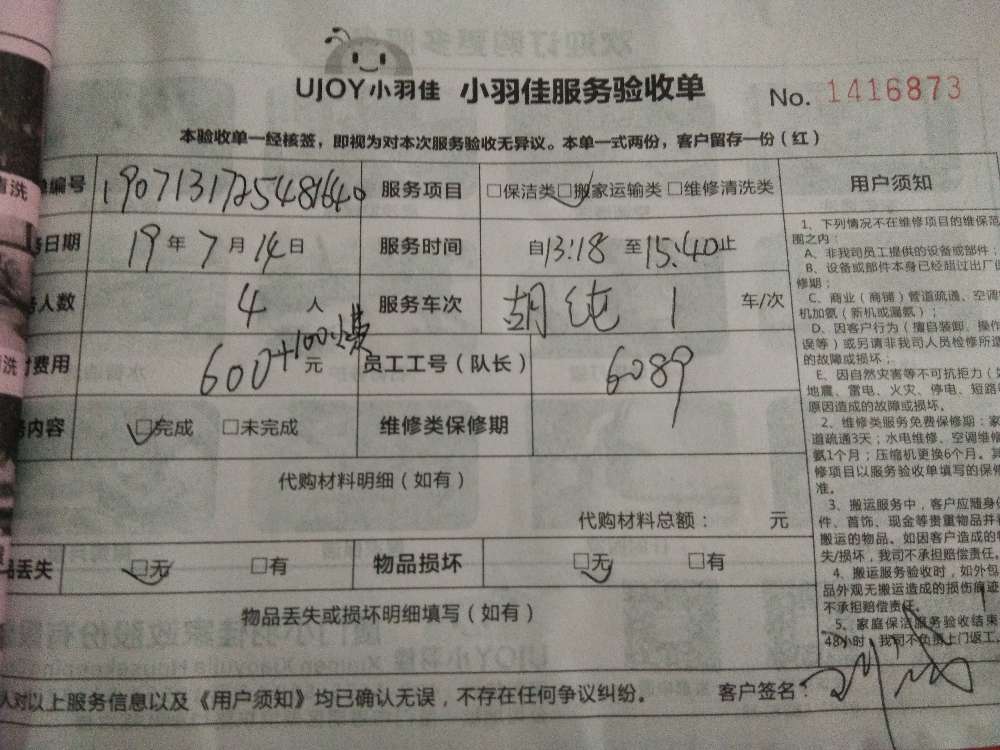 UJOY小羽佳 小羽佳服务验收单 No. 1416873
本验收单一经核签，即视为对本次服务验收无异议。本单一式两份，客户留存一份（红）
编号 1907131725481640 服务项目 □保洁类 □搬家运输类 □维修清洗类
日期 19 年 7 月 14 日 服务时间 自 13:18 至 15:40 止
人数 4 人 服务车次 胡纯 1 车/次
费用 600+100 元 员工工号（队长） 6089
内容 □完成 □未完成 维修类保修期
代购材料明细（如有）
代购材料总额： 元
丢失 □无 □有 物品损坏 □无 □有
物品丢失或损坏明细填写（如有）
对以上服务信息以及《用户须知》均已确认无误，不存在任何争议纠纷。 客户签名：
用户须知
1、下列情况不在维修项目的维保范
围之内：
A、非我司员工提供的设备或部件；
B、设备或部件本身已经超过出厂保
修期；
C、商业（商铺）管道疏通、空调
机加氨（新机或漏氨）；
D、因客户行为（擅自装卸、操作
误等）或另请非我司人员检修所造
的故障或损坏；
E、因自然灾害等不可抗拒力（如
地震、雷电、火灾、停电、短路
原因造成的故障或损坏。
2、维修类服务免费保修期：家
道疏通3天；水电维修、空调维修
氨1个月；压缩机更换6个月。其
修项目以服务验收单填写的保修
准。
3、搬运服务中，客户应随身
件、首饰、现金等贵重物品并
搬运的物品。如因客户造成的
失/损坏，我司不承担赔偿责任。
4、搬运服务验收时，如外包
品外观无搬运造成的损伤痕迹
不承担赔偿责任。
5、家庭保洁服务验收结束
48小时，我司不负责上门返工。
清洗
洗